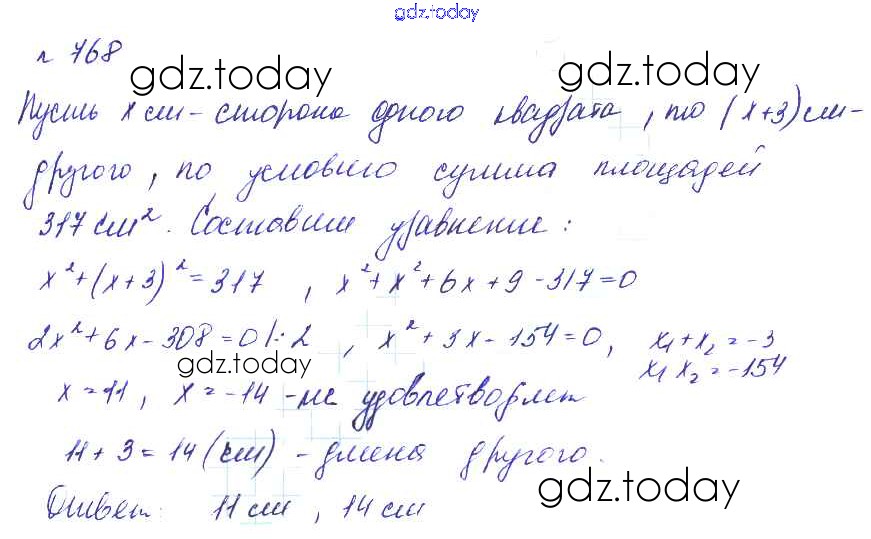 gdz.today
n 768
gdz.today gdz.today
Пусть x см - сторона одного квадрата, то (x+3) см -
другого, по условию сумма площадей
317 см². Составим уравнение:
x²+(x+3)²=317, x²+x²+6x+9-317=0
2x²+6x-308=0 |:2, x²+3x-154=0, x₁+x₂=-3
gdz.today x₁x₂=-154
x=11, x=-14 - не удовлетворяет
11+3=14 (см) - длина другого.
gdz.today
Ответ: 11 см, 14 см